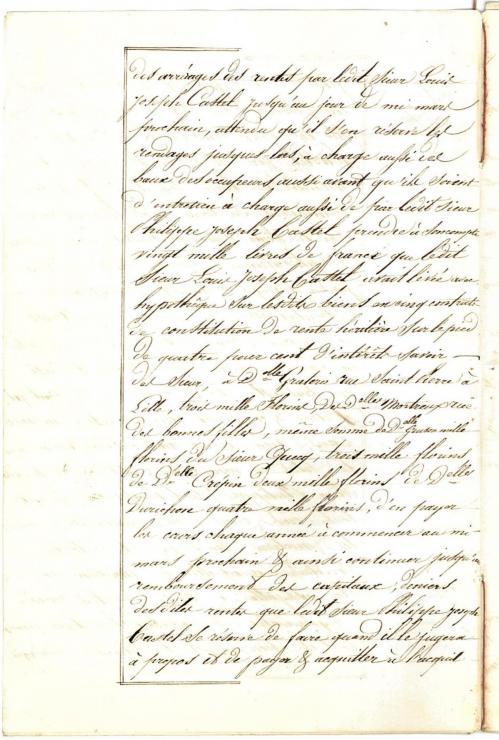 des arrérages des rentes par ledit Sieur Louis
Joseph Castel jusqu'au jour de mi mars
prochain, attendu qu'il s'en réserve les
rendages jusques lors, à charge aussi des
baux des occupeurs aussi avant qu'ils soient
d'entretien à charge aussi de par ledit Sieur
Philippe Joseph Castel prendre à son compte
vingt mille livres de france que ledit
Sieur Louis Joseph Castel avait levée avec
hypothèque sur lesdits biens en cinq contrats
de constitution de rente héritière sur le pied
de quatre pour cent d'intérêt savoir
des Sieur, à Delle rue Saint Pierre à
Lille, trois mille florins, De Delles rue
des bonnes filles, même somme de Delle mille
florins du Sieur trois mille florins
de Delle Crepin deux mille florins de Delle
quatre mille florins, d'en payer
les cours chaque année à commencer au mi
mars prochain & ainsi continuer jusqu'au
remboursement des capitaux, deniers
desdites rentes que ledit Sieur Philippe Joseph
Castel se réserve de faire quand il le jugera
à propos et de payer & acquitter à l'acquit